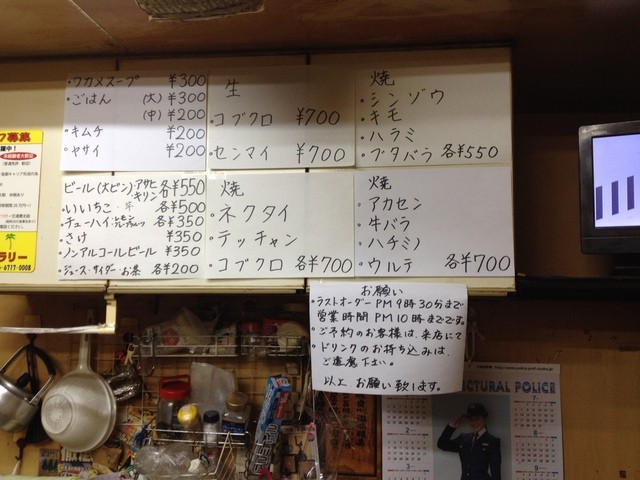 ・ワカメスープ ¥300
・ごはん (大) ¥300
(中) ¥200
・キムチ ¥200
・ヤサイ ¥200
生
・コブクロ ¥700
・センマイ ¥700
焼
・シンゾウ
・キモ
・ハラミ
・ブタバラ 各¥550
ビール(大ビン)アサヒ キリン 各¥550
・いいちこ 各¥500
・チューハイ 各¥350
・さけ ¥350
・ノンアルコールビール ¥350
・ジュース・サイダー・お茶 各¥200
焼
・ネクタイ
・テッチャン
・コブクロ 各¥700
焼
・アカセン
・牛バラ
・ハチミノ
・ウルテ 各¥700
お願い
・ラストオーダー PM9時30分まで
営業時間 PM10時までです。
・ご予約のお客様は、来店にて
・ドリンクのお持ち込みは、
ご遠慮下さい。
以上 お願い致します。
募集
ラリー
6717-0008
CTURAL POLICE